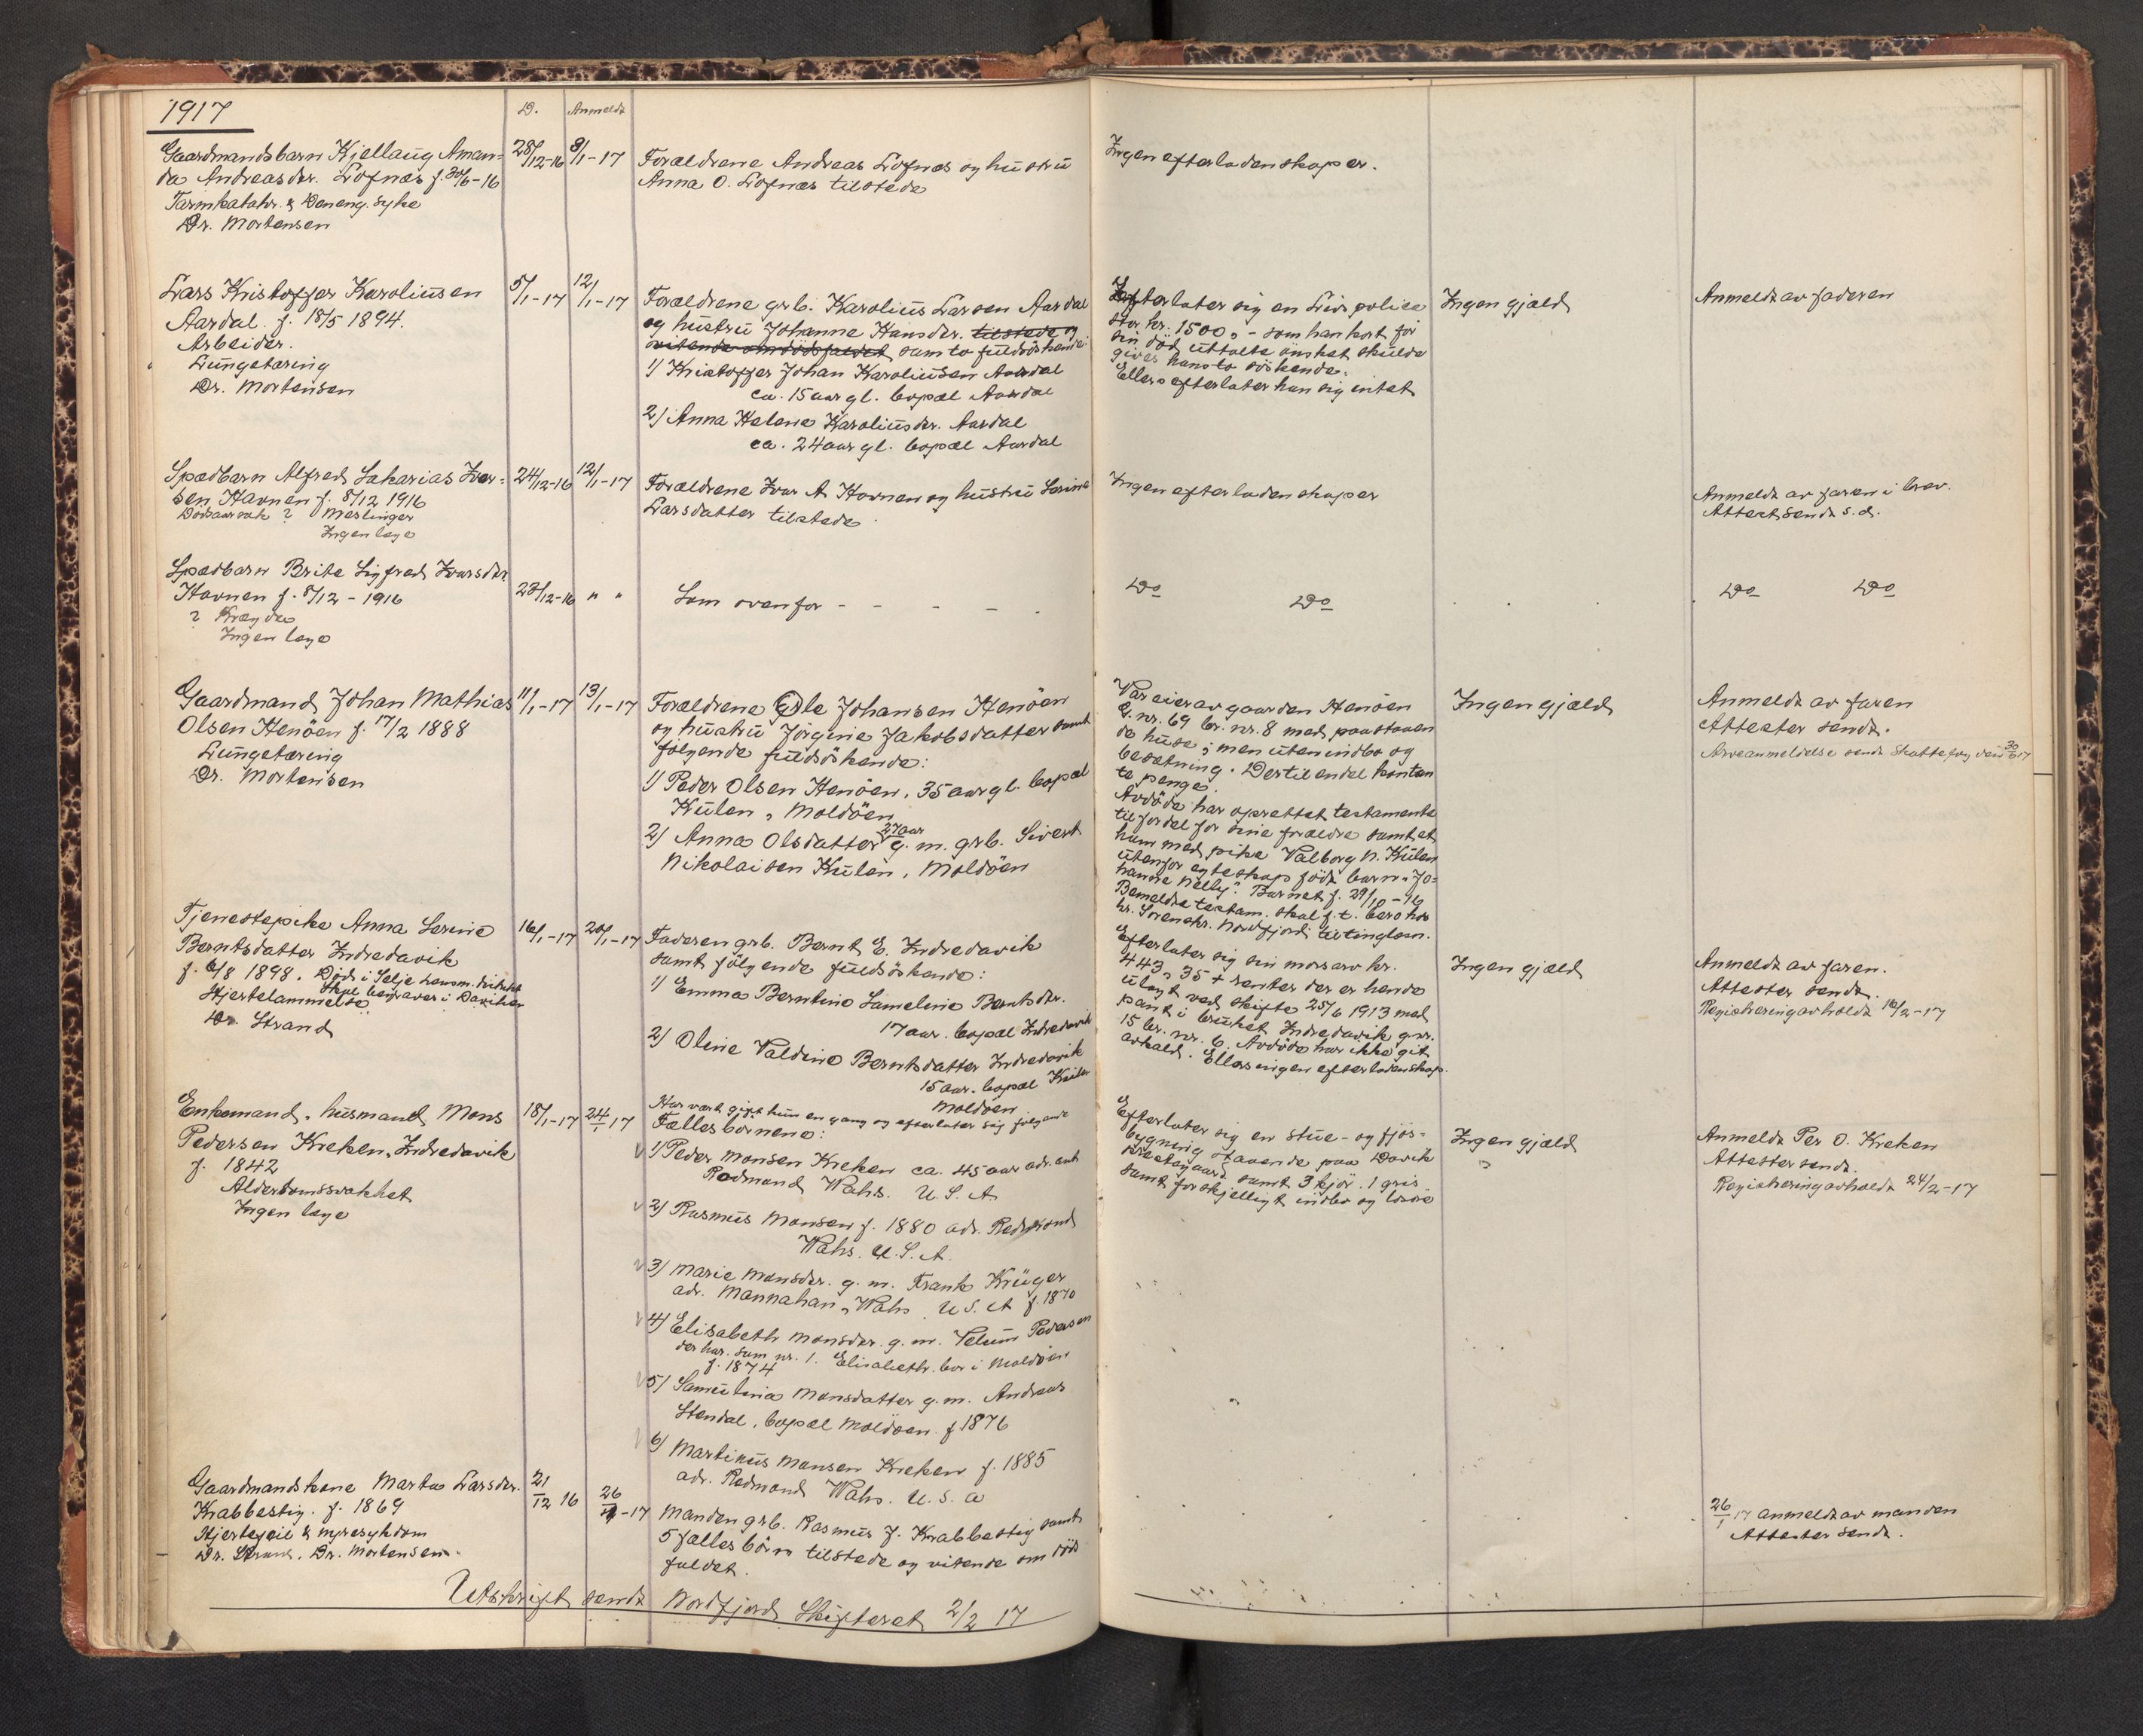 1917
D. Anmeldt
Gaardmandsbarn Kjellaug Aman-
da Andreasdr. Lofnæs f. 30/6-16
Tarmkatahr. & Den eng. syke
Dr. Mortensen
28/12-16 8/1-17
Forældrene Andreas Lofnæs og hustru
Anna O. Lofnæs tilstede
Ingen efterladenskaper.
Lars Kristoffer Karoliusen
Aardal. f. 18/5 1894.
Arbeider.
Lungetæring
Dr. Mortensen
5/1-17 12/1-17
Forældrene grb. Karolius Larsen Aardal
og hustru Johanne Hansdr. tilstede og
vitende om dödsfaldet samt to fuldsöskende:
1) Kristoffer Johan Karoliusen Aardal
ca. 15 aar gl. bopæl Aardal
2) Anna Helene Karoliusdr. Aardal
ca. 24 aar gl. bopæl Aardal
Efterlater sig en Livspolice
stor kr. 1500,- som han kort för
sin död uttalte önsket skulde
gives hans to söskende.
Ellers efterlater han sig intet
Ingen gjæld
Anmeldt av faderen
Spædbarn Alfred Sakarias Ivar-
sen Havnen f. 8/12 1916
Dödsaarsak ? Meslinger
Ingen læge
24/12-16 12/1-17
Forældrene Ivar A Havnen og hustru Serine
Larsdatter tilstede.
Ingen efterladenskaper
Anmeldt av faren i brev.
Attest sendt s.d.
Spædbarn Brite Sigfred Ivarsdr
Havnen f. 8/12 - 1916
? Kregden
Ingen læge
28/12-16 " "
Som ovenfor - - - - -
Do Do
Do Do
Gaardmand Johan Mathias
Olsen Henöen f. 17/2 1888
Lungetæring
Dr. Mortensen
11/1-17 13/1-17
Forældrene Ole Johansen Henöen
og hustru Jörgine Jakobsdatter samt
følgende fuldsöskende:
1) Peder Olsen Henöen, 35 aar gl. bopæl
Kulen, Moldöen
27 aar
2) Anna Olsdatter g. m. grb. Sivert
Nikolaisen Kulen, Moldöen
Var eier av gaarden Henöen
g. nr. 69 br. nr. 8 med paastaaen
de huse; men uten indbo og
besætning. Dertil endel kontan
te penge.
Avdöde har oprettet testamente
til fordel for sine forældre samt et
ham med pike Valborg N. Kulen
utenfor egteskap födt barn "Jo-
hanne Nelly". Barnet f. 29/10-16
Bemeldte testam. skal f. t. bero hos
hr. Sorenskr. Nordfjord til tinglæsn.
Ingen gjæld
Anmeldt av faren
Attester sendt.
Arveanmeldelse sendt Skattefog den 30/6 17
Tjenestepike Anna Serine
Berntsdatter Indredavik
f. 6/8 1898. Död i Selje lensm. distrikt
Skal begraves i Daviken
Hjertelammelse
Dr. Strand
16/1-17 20/1-17
Faderen grb. Bernt E. Indredavik
samt følgende fuldsöskende:
1) Emma Berntine Sameline Berntsdtr.
17 aar. bopæl Indredavik
2) Oline Valdine Berntsdatter Indredavik
15 aar. bopæl Kulen
Moldöen
Efterlater sig sin morsarv kr.
443,35 + renter der er hende
utlagt ved skifte 25/6 1913 med
pant i bruket Indredavik gnr.
15 br. nr. 6. Avdöde har ikke git
avkald. Ellers ingen efterladenskap.
Ingen gjæld
Anmeldt av faren.
Attester sendt.
Registrering avholdt 16/2-17
Enkemand, husmand Mons
Pedersen Kreken, Indredavik
f. 1842
Alderdomssvakhet
Ingen læge
18/1-17 24/1 17
Har vært gift kun en gang og efterlater sig følgende
Fællesbörnene:
1) Peder Monsen Kreken ca. 45 aar adr. ant
Redmond Wahs. U. S. A
2) Rasmus Monsen f. 1880 adr. Redmond
Wahs. U. S. A.
3) Marie Monsdr. g. m. Frank Krüger
adr. Mannahan, Wahs U. S. A f. 1870
4) Elisabeth Monsdr. g. m. Pedersen
der har. sam nr. 1. Elisabeth. bor i Moldöen
f. 1874
5) Samuline Monsdatter g. m. Andreas
Stendal, bopæl Moldöen f 1876
6) Martinus Monsen Kreken f. 1885
adr. Redmond Wahs. U. S. A
Efterlater sig en stue- og fjös-
bygning staaende paa Davik
prestegaard samt 3 kjör. 1 gris
samt forskjelligt indbo og lösöre
Ingen gjæld
Anmeldt Per O. Kreken
Attester sendt.
Registrering avholdt 24/2-17
Gaardmandskone Marta Larsdr.
Krabbestig. f. 1869
Hjertefeil & nyresykdom
Dr. Strand, Dr. Mortensen.
21/12 16 26/1-17
Manden grb. Rasmus J. Krabbestig samt
5 fællesbörn tilstede og vitende om döds
faldet.
26/1 17 anmeldt av manden
Attester sendt.
Utskrift sendt Nordfjord Skifteret 2/2 17